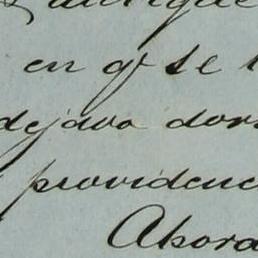 en qe se
dejava dor
providenc
Ahora